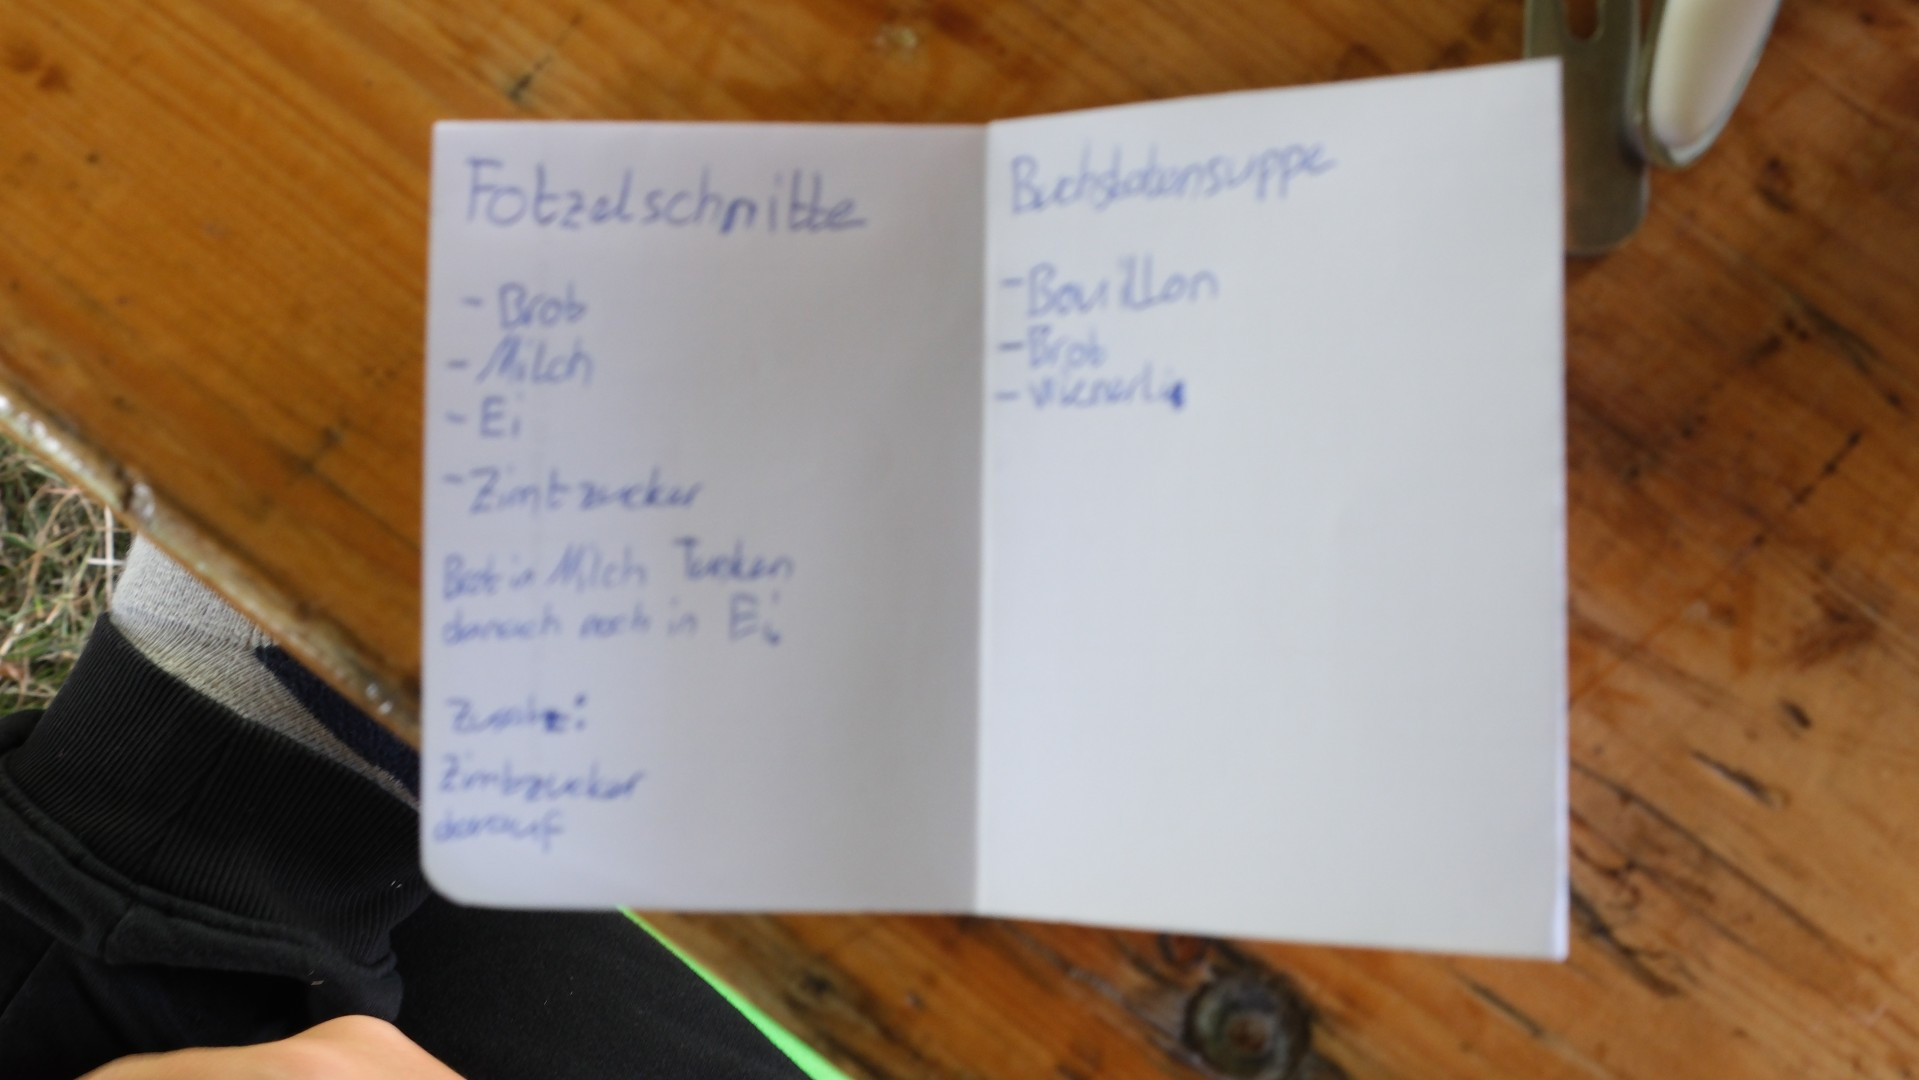 Fotzelschnitte
- Brot
- Milch
- Ei
- Zimtzucker
Brot in Milch Tunken
danach noch in Ei
Zusatz:
Zimtzucker
darauf
Buchstabensuppe
- Bouillon
- Brot
- Wienerli